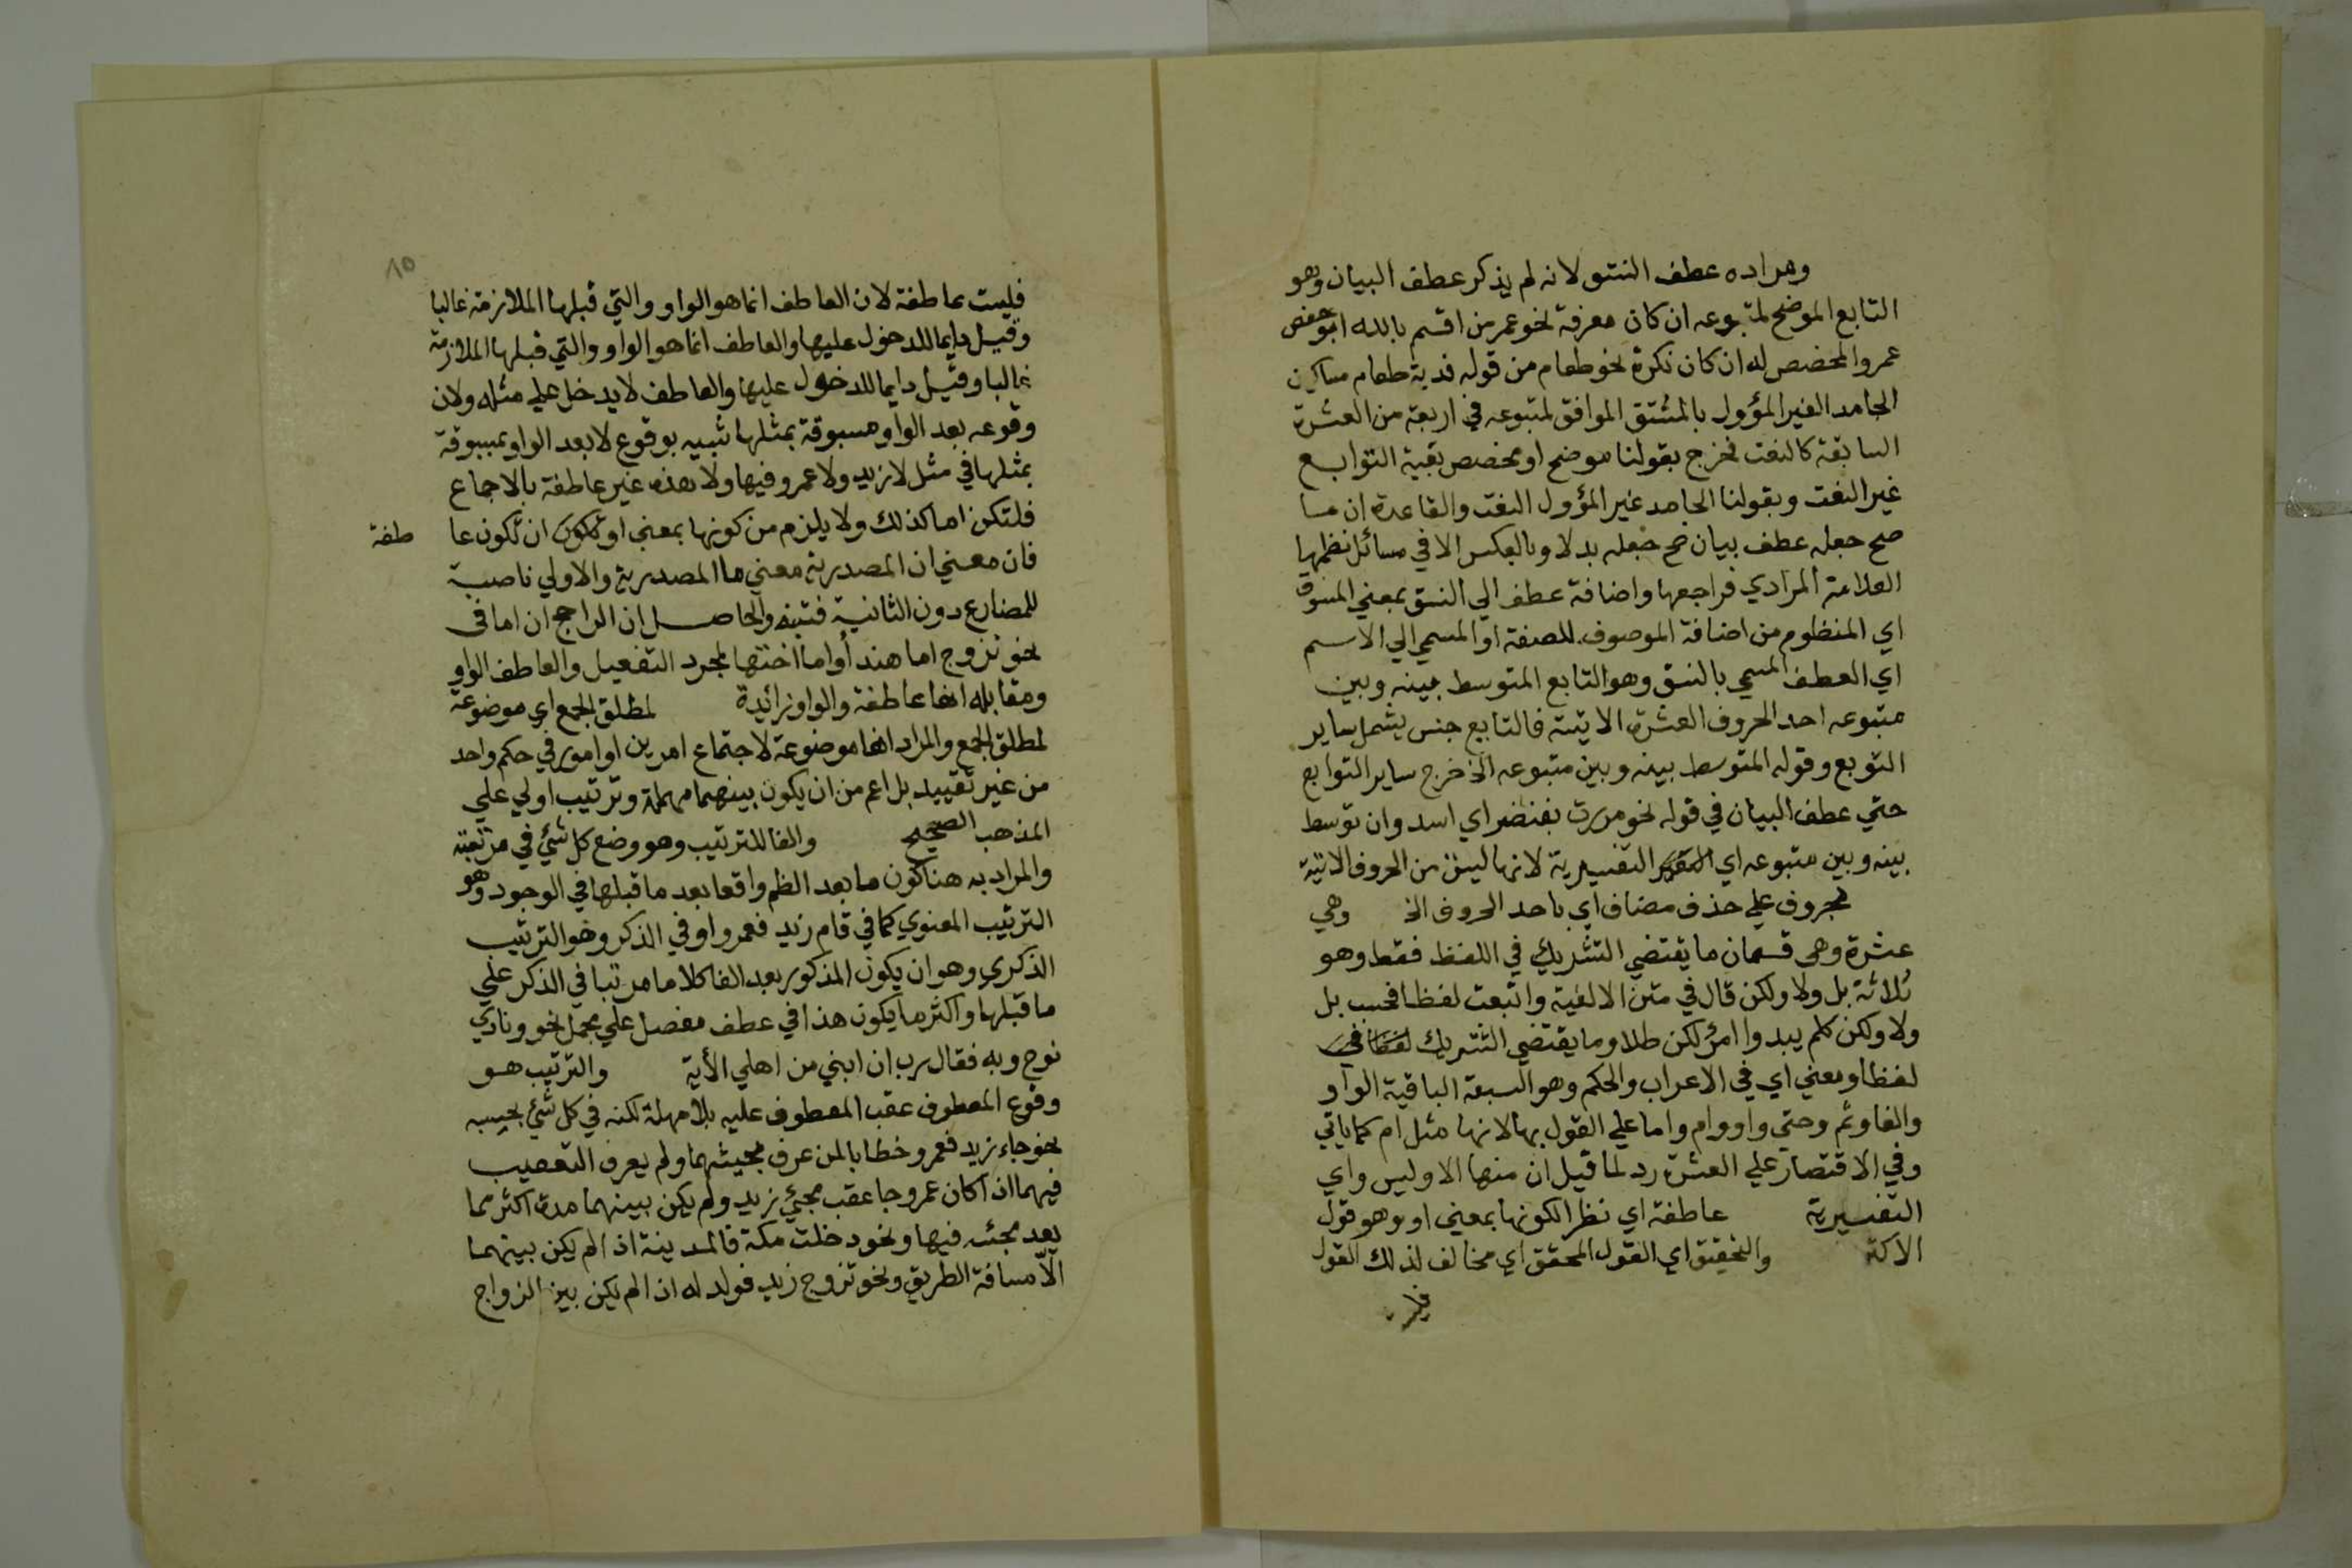 ومراده عطف النسق لانه لم يذكر عطف البيان وهو
التابع الموضح لمتبوعه ان كان معرفة نحو عمر من اقسم بالله ابو حفص
عمر والمخصص له ان كان نكرة نحو طعام من قوله فدية طعام مساكين
الجامد الغير المؤول بالمشتق الموافق لمتبوعه في اربعة من العشرة
السابقة كالنعت فخرج بقولنا موضح او مخصص بقية التوابع
غير النعت وبقولنا الجامد غير المؤول النعت والقاعدة ان ما
صح جعله عطف بيان صح جعله بدلا وبالعكس الا في مسائل نظمها
العلامة المرادي فراجعها واضافة عطف الي النسق بمعني المنسوق
اي المنظوم من اضافة الموصوف للصفة او المسمي الي الاسم
اي العطف المسمي بالنسق وهو التابع المتوسط بينه وبين
متبوعه احد الحروف العشرة الاتية فالتابع جنس يشمل ساير
التوبع وقوله المتوسط بينه وبين متبوعه الخ خرج ساير التوابع
حتي عطف البيان في قوله نحو مررت بغضنفر اي اسد وان توسط
بينه وبين متبوعه اي التفسيرية لانها ليس من الحروف الاتية
بحروف علي حذف مضاف اي باحد الحروف الخ وهي
عشرة وهي قسمان ما يقتضي التشريك في اللفظ فقط وهو
ثلاثة بل ولا ولكن قال في متن الالفية واتبعت لفظا فحسب بل
ولا ولكن كلم يبدوا امرؤ لكن طلا وما يقتضي التشريك لفظا في
لفظا ومعني اي في الاعراب والحكم وهو السبعة الباقية الواو
والفا وثم وحتي واو وام واما علي القول بها لانها مثل ام كما ياتي
وفي الاقتصار علي العشرة رد لما قيل ان منها الا وليس واي
التفسيرية عاطفة اي نظرا لكونها بمعني او وهو قول
الاكثر والتحقيق اي القول المحقق اي مخالف لذلك القول
٨٥
فليست عاطفة لان العاطف انما هو الواو والتي قبلها الملازمة غالبا
وقيل دايما للدخول عليها والعاطف انما هو الواو والتي قبلها الملازمة
غالبا وقيل دايما للدخول عليها والعاطف لا يدخل علي مثله ولان
وقوعه بعد الواو مسبوقة بمثلها شبيه بوقوع لا بعد الواو بمسبوقة
بمثلها في مثل لا زيد ولا عمرو فيها ولا هذه غير عاطفة بالاجماع
فلتكن اما كذلك ولا يلزم من كونها بمعني او ان تكون عا طفة
فان معني ان المصدرية معني ما المصدرية والاولي ناصبة
للمضارع دون الثانية فتنبه والحاصل ان الراجح ان اما في
نحو تزوج اما هند أو اما اختها لمجرد التفصيل والعاطف الواو
ومقابله انها عاطفة والواو زائدة لمطلق الجمع اي موضوعة
لمطلق الجمع والمراد انها موضوعة لاجتماع امرين او امور في حكم واحد
من غير تقييد بل اعم من ان يكون بينهما مهملة وترتيب اولي علي
المذهب الصحيح والفا للترتيب وهو وضع كل شئ في مرتبته
والمراد به هنا كون ما بعد الظم واقعا بعد ما قبلها في الوجود وهو
الترتيب المعنوي كما في قام زيد فعمرو او في الذكر وهو الترتيب
الذكري وهو ان يكون المذكور بعد الفا كلاما مرتبا في الذكر علي
ما قبلها واكثر ما يكون هذا في عطف مفصل علي مجمل نحو ونادي
نوح ربه فقال رب ان ابني من اهلي الأية والترتيب هو
وقوع المعطوف عقب المعطوف عليه بلا مهلة لكنه في كل شئ بحسبه
نحو جاء زيد فعمرو خطابا لمن عرف مجيئهما ولم يعرف التعقيب
فيهما اذا كان عمرو جا عقب مجئ زيد ولم يكن بينهما مدة اكثر مما
بعد مجئه فيها ونحو دخلت مكة فالمدينة اذا لم يكن بينهما
الا مسافة الطريق ونحو تزوج زيد فولد له اذا لم يكن بين الزواج